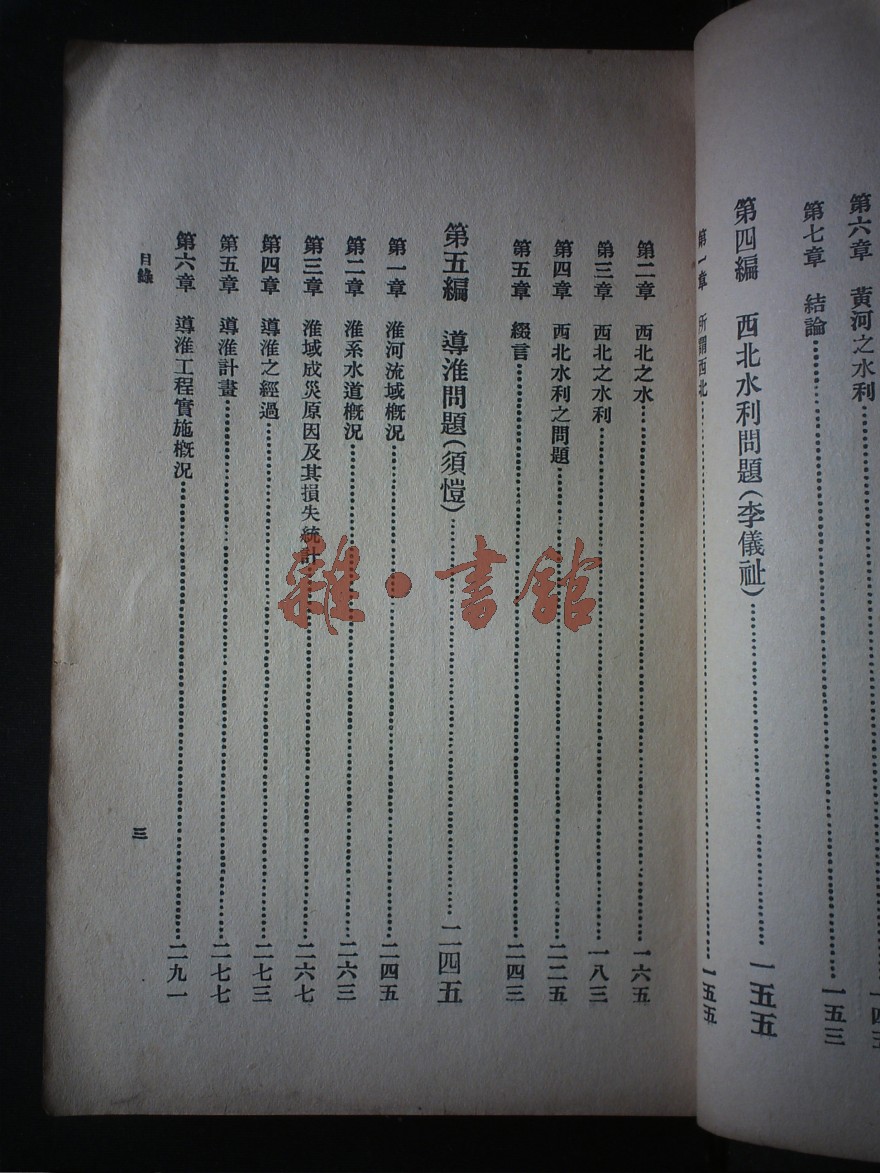 第六章 黃河之水利……一四
第七章 結論……一五三
第四編 西北水利問題(李儀祉)……一五五
第一章 所謂西北……一五五
第二章 西北之水……一六五
第三章 西北之水利……一八三
第四章 西北水利之問題……二二五
第五章 綴言……二四三
第五編 導淮問題(須愷)……二四五
第一章 淮河流域概況……二四五
第二章 淮系水道概況……二六三
第三章 淮域成災原因及其損失統計……二六七
第四章 導淮之經過……二七三
第五章 導淮計畫……二七七
第六章 導淮工程實施概況……二九一
目錄
三
雜·書館